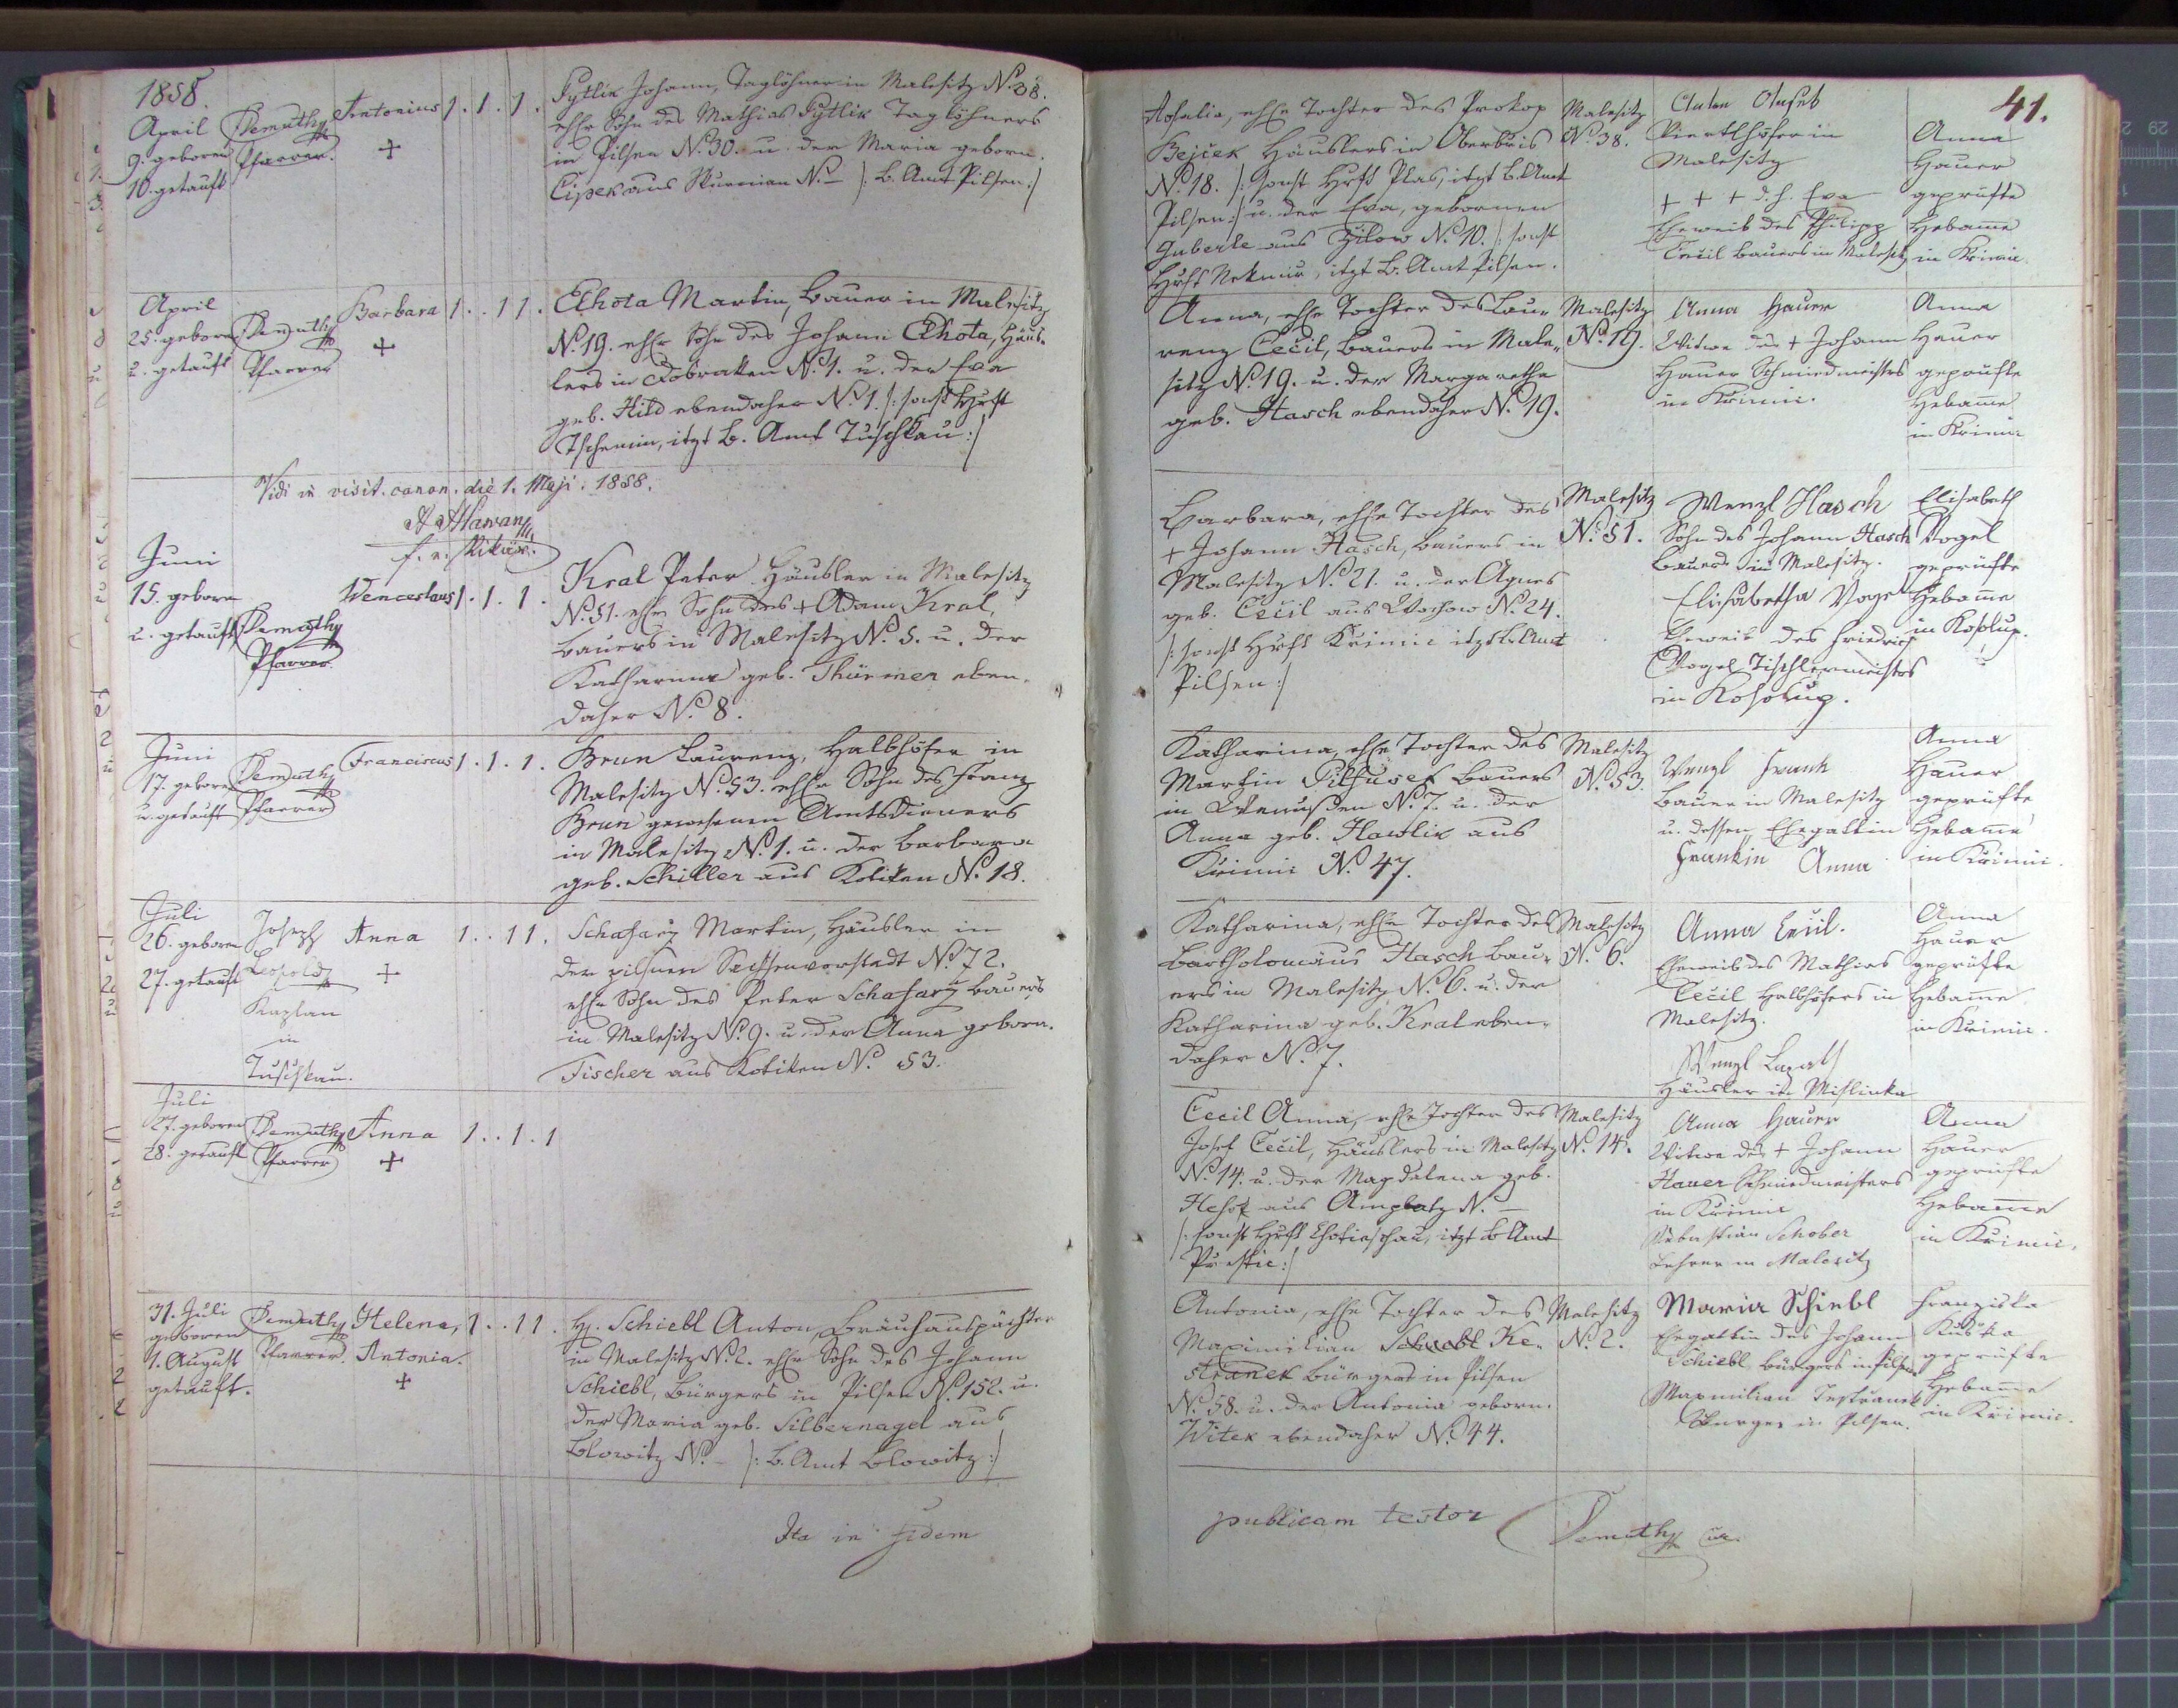 1858.
April
9. geboren
10. getauft
Demuth
Pfarrer.
Antonius 1. 1. 1.
Pytlik Johann, Taglöhner in Malesitz N. 38.
ehl. Sohn des Mathias Pytlik Taglöhners
in Pilsen N. 30. u. der Maria geborn.
aus N. — /: B. Amt Pilsen :/
Rosalia, ehl. Tochter des Prokop
Bejček Häuslers in
N. 18. /: sonst Hrft Plas, itzt B. Amt
Pilsen :/ u. der Eva, gebornen
Guberle aus N. 10. /: sonst
Hrft Nekmir, itzt B. Amt Pilsen.
Malesitz
N. 38.
Anton
Viertlhöfer in
Malesitz
+ + + d. h. Eva
Eheweib des Philipp
Cecil Bauers in Malesitz
41.
Anna
Hauer
geprüfte
Hebame
in Krimic
April
25. geboren
u. getauft
Demuth
Pfarrer
Barbara 1. . 1 1.
Lhota Martin, Bauer in Malesitz
N. 19. ehl. Sohn des Johann Lhota, Häus-
lers in Dobraken N. 1. u. der Eva
geb. Hild ebendaher N. 1. /: sonst Hrft
Tschemin, itzt B. Amt Tuschkau :/
Anna, ehl. Tochter des Lau-
renz Cečil, Bauers in Male-
sitz N. 19. u. der Margaretha
geb. Hasch ebendaher N. 19.
Malesitz
N. 19.
Anna Hauer
Witwe des + Johann
Hauer Schmiedmeisters
in Krimic.
Anna
Hauer
geprüfte
Hebame
in Krimic
Vidi in visit. canon. die 1. Maji. 1858.
f. e. Vikär.
Juni
15. geboren
u. getauft
Demuth
Pfarrer.
Wenceslaus 1. 1. 1.
Kral Peter Häusler in Malesitz
N. 51. ehl. Sohn des + Adam Kral,
Bauers in Malesitz N. 5. u. der
Katharina geb. Thürmer eben-
daher N. 8.
Barbara, ehl. Tochter des
+ Johann Hasch, Bauers in
Malesitz N. 21. u. der Agnes
geb. Cečil aus Wochow N. 24.
/: sonst Hrft Krimic itzt B. Amt
Pilsen :/
Malesitz
N. 51.
Wenzl Hasch
Sohn des Johann Hasch
Bauers in Malesitz.
Elisabetha Vogel
Eheweib des Friedrich
Vogel Tischlermeisters
in Kosolup.
Elisabeth
Vogel
geprüfte
Hebame
in Kosolup.
Juni
17. geboren
u. getauft
Demuth
Pfarrer
Franciscus 1. 1. 1.
Brun Laurenz, Halbhöfer in
Malesitz N. 53. ehl. Sohn des Franz
Brun gewesenen Amtsdieners
in Malesitz N. 1. u. der Barbara
geb. Schiller aus Kotiken N. 18.
Katharina, ehl. Tochter des
Martin Pilhusek Bauers
in Wenussen N. 7. u. der
Anna geb. Hawlik aus
Krimic N. 47.
Malesitz
N. 53.
Wenzl Frank
Bauer in Malesitz
u. dessen Ehegattin
Frankin Anna
Anna
Hauer
geprüfte
Hebame
in Krimic.
Juli
26. geboren
27. getauft
Joseph
Leopold
Kaplan
in
Tuschkau.
Anna 1. . 1 1.
Schafarz Martin, Häusler in
der pilsner Sachsenvorstadt N. 72.
ehl. Sohn des Peter Schafarz Bauers
in Malesitz N. 9. u. der Anna geborn.
Fischer aus Kotiken N. 53.
Katharina, ehl. Tochter des
Bartholomäus Hasch Bau-
ers in Malesitz N. 6. u. der
Katharina geb. Kral eben-
daher N. 7.
Malesitz
N. 6.
Anna Cecil.
Eheweib des Mathias
Cečil Halbhöfers in
Malesitz.
Wenzl
Häusler in Mislinka
Anna
Hauer
geprüfte
Hebame
in Krimic.
Juli
27. geboren
28. getauft
Demuth
Pfarrer
Anna 1. . 1. 1
Cecil Anna, ehl. Tochter des
Josef Cečil, Häuslers in Malesitz
N. 14. u. der Magdalena geb.
aus Amplatz N. —
/: sonst Hrft Chotieschau, itzt B. Amt
Prestic :/
Malesitz
N. 14.
Anna Hauer
Witwe des + Johann
Hauer Schmiedmeisters
in Krimic
Sebastian Schober
Lehrer in Malesitz
Anna
Hauer
geprüfte
Hebame
in Krimic.
31. Juli
geboren
1. August
getauft.
Demuth
Pfarrer.
Helena, 1. . 1 1.
Antonia.
H. Schiebl Anton, Bräuhauspächter
in Malesitz N. 2. ehl. Sohn des Johann
Schiebl, Bürgers in Pilsen N. 152. u.
der Maria geb. Silbernagel aus
Blowitz N. — /: B. Amt Blowitz :/
Antonia, ehl. Tochter des
Maximilian
Bürgers in Pilsen
N. 58. u. der Antonia geborn.
Witek ebendaher N. 44.
Malesitz
N. 2.
Maria Schiebl
Ehegattin des Johann
Schiebl Bürgers in Pilsen
Maxmilian
Bürger in Pilsen.
Franziska
geprüfte
Hebame
in Krimic.
Ita in fidem
publicam testor
Demuth